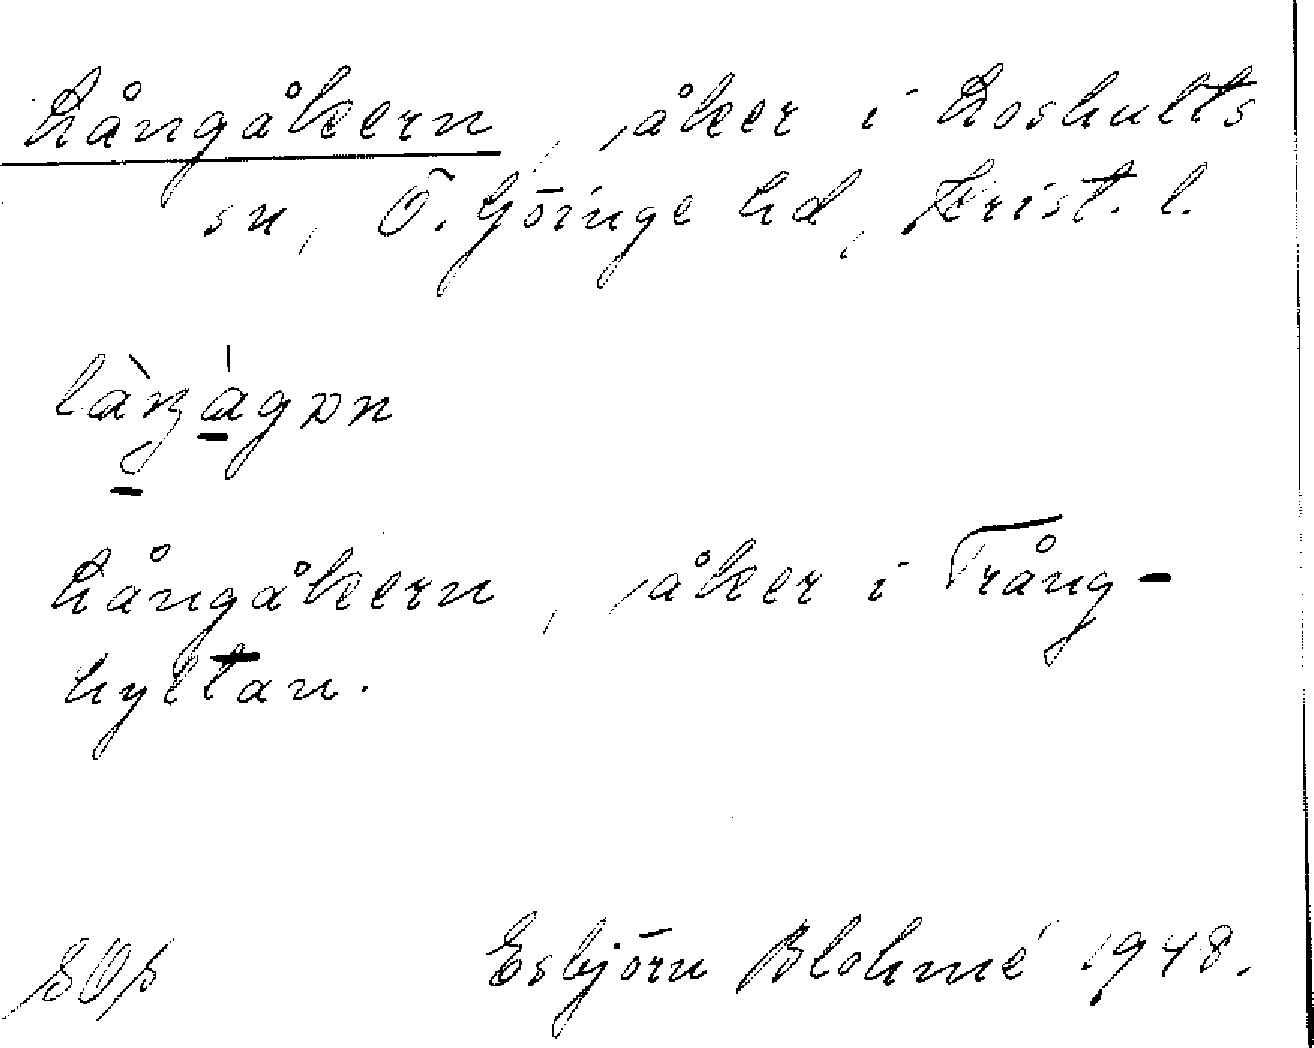 Långåkern, åker i Loshults
sn, Ö. Göinge hd, Krist. l.
Långåkern, åker i Trång-
hyltan.
Esbjörn Blohmé 1948.